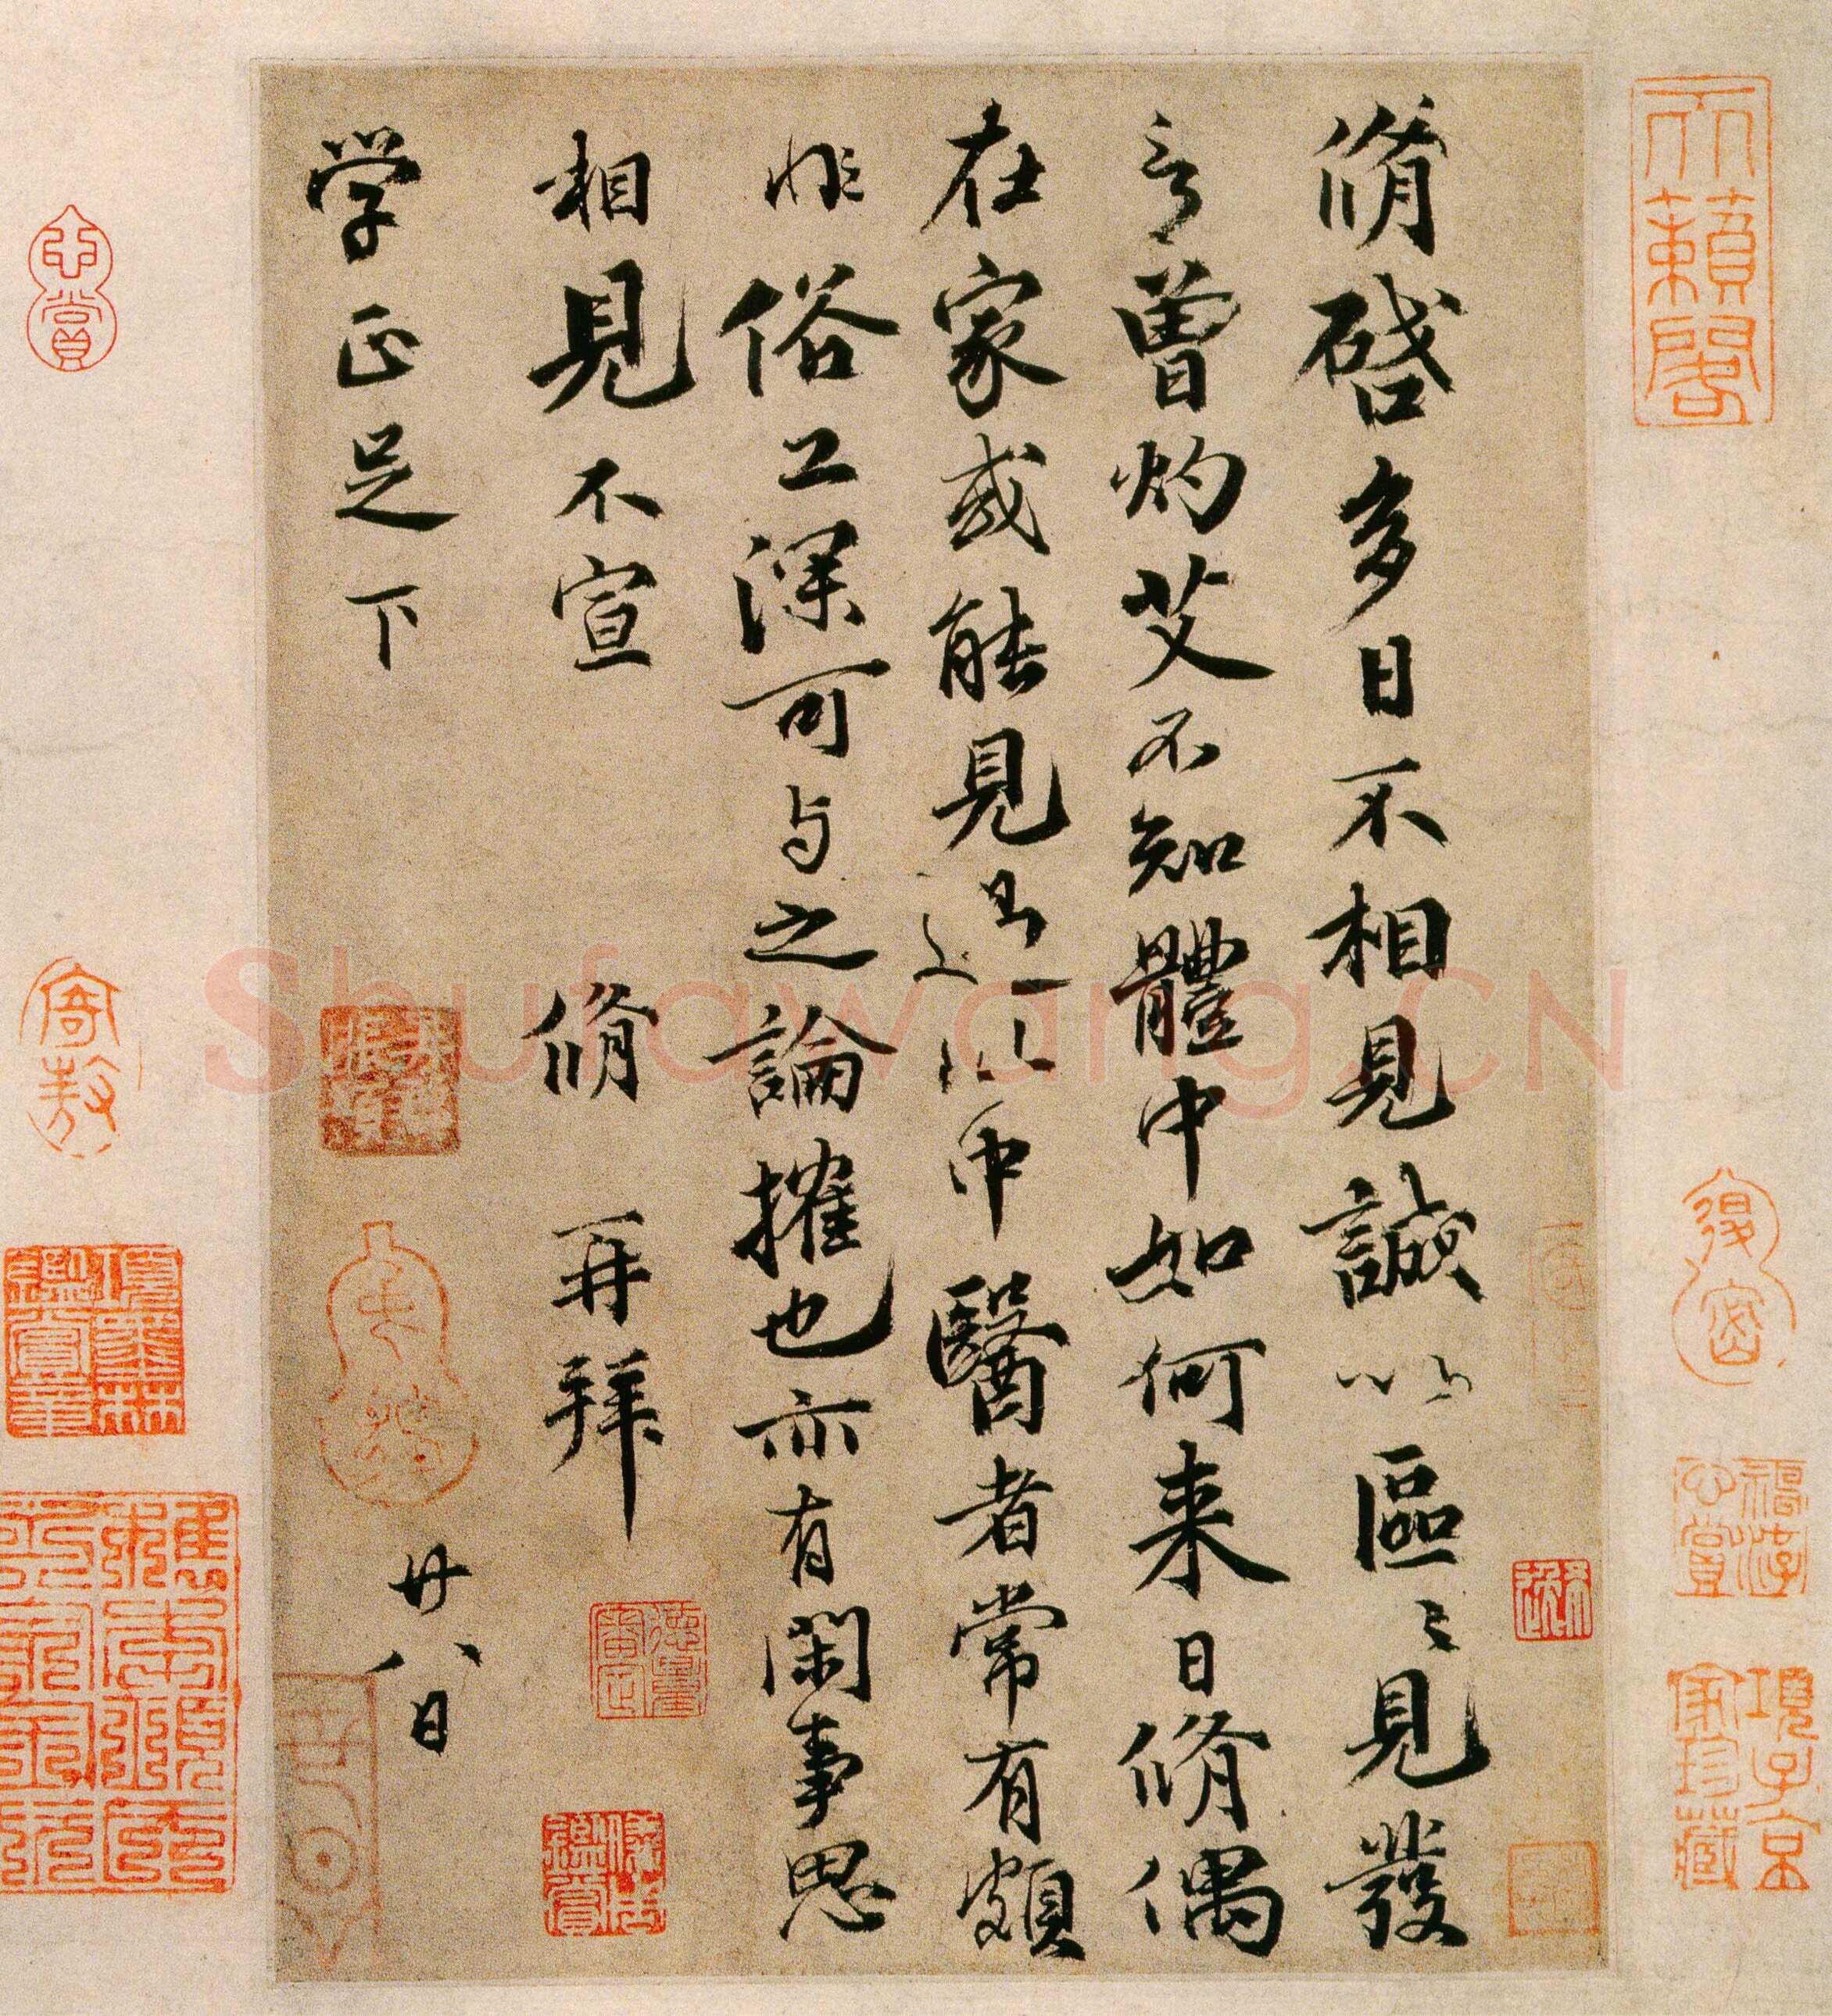 脩啓多日不相見誠以區〻見發
言曾灼艾不知體中如何来日脩偶
在家或能見過以中醫者常有頗
非俗工深可与之論攉也亦有閑事思
相見不宣 脩 再拜
学正足下 廿八日
天籟閣
項子京家珍藏
項墨林鑑賞章
寄敖
Shufawang.CN